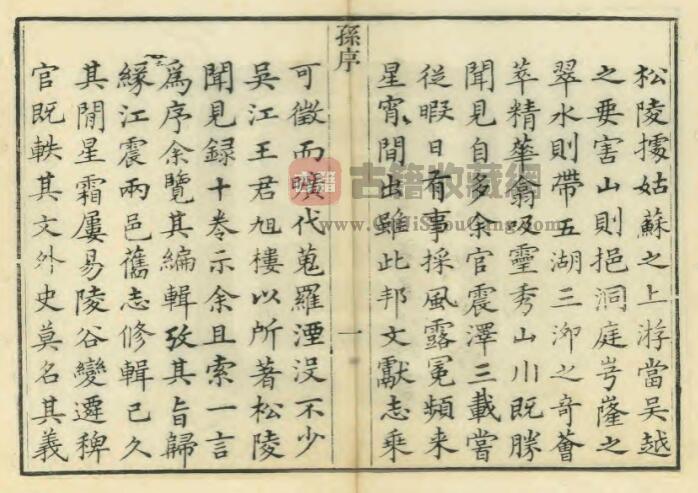 松陵據姑蘇之上游當吳越
之要害山則挹洞庭嶐之
翠水則帶五湖三泖之奇薈
萃精華翕吸靈秀山川既勝
聞見自多余官震澤三載嘗
從暇日有事採風露冕頻來
星宵間出雖此邦文獻志乘
孫序
一
可徵而曠代蒐羅湮没不少
吳江王君旭樓以所著松陵
聞見録十卷示余且索一言
爲序余覽其編輯攷其旨歸
緣江震兩邑舊志修輯已久
其間星霜屢易陵谷變遷稗
官既軼其文外史莫名其義
古籍
古籍收藏網
www.GuJiShouCang.com